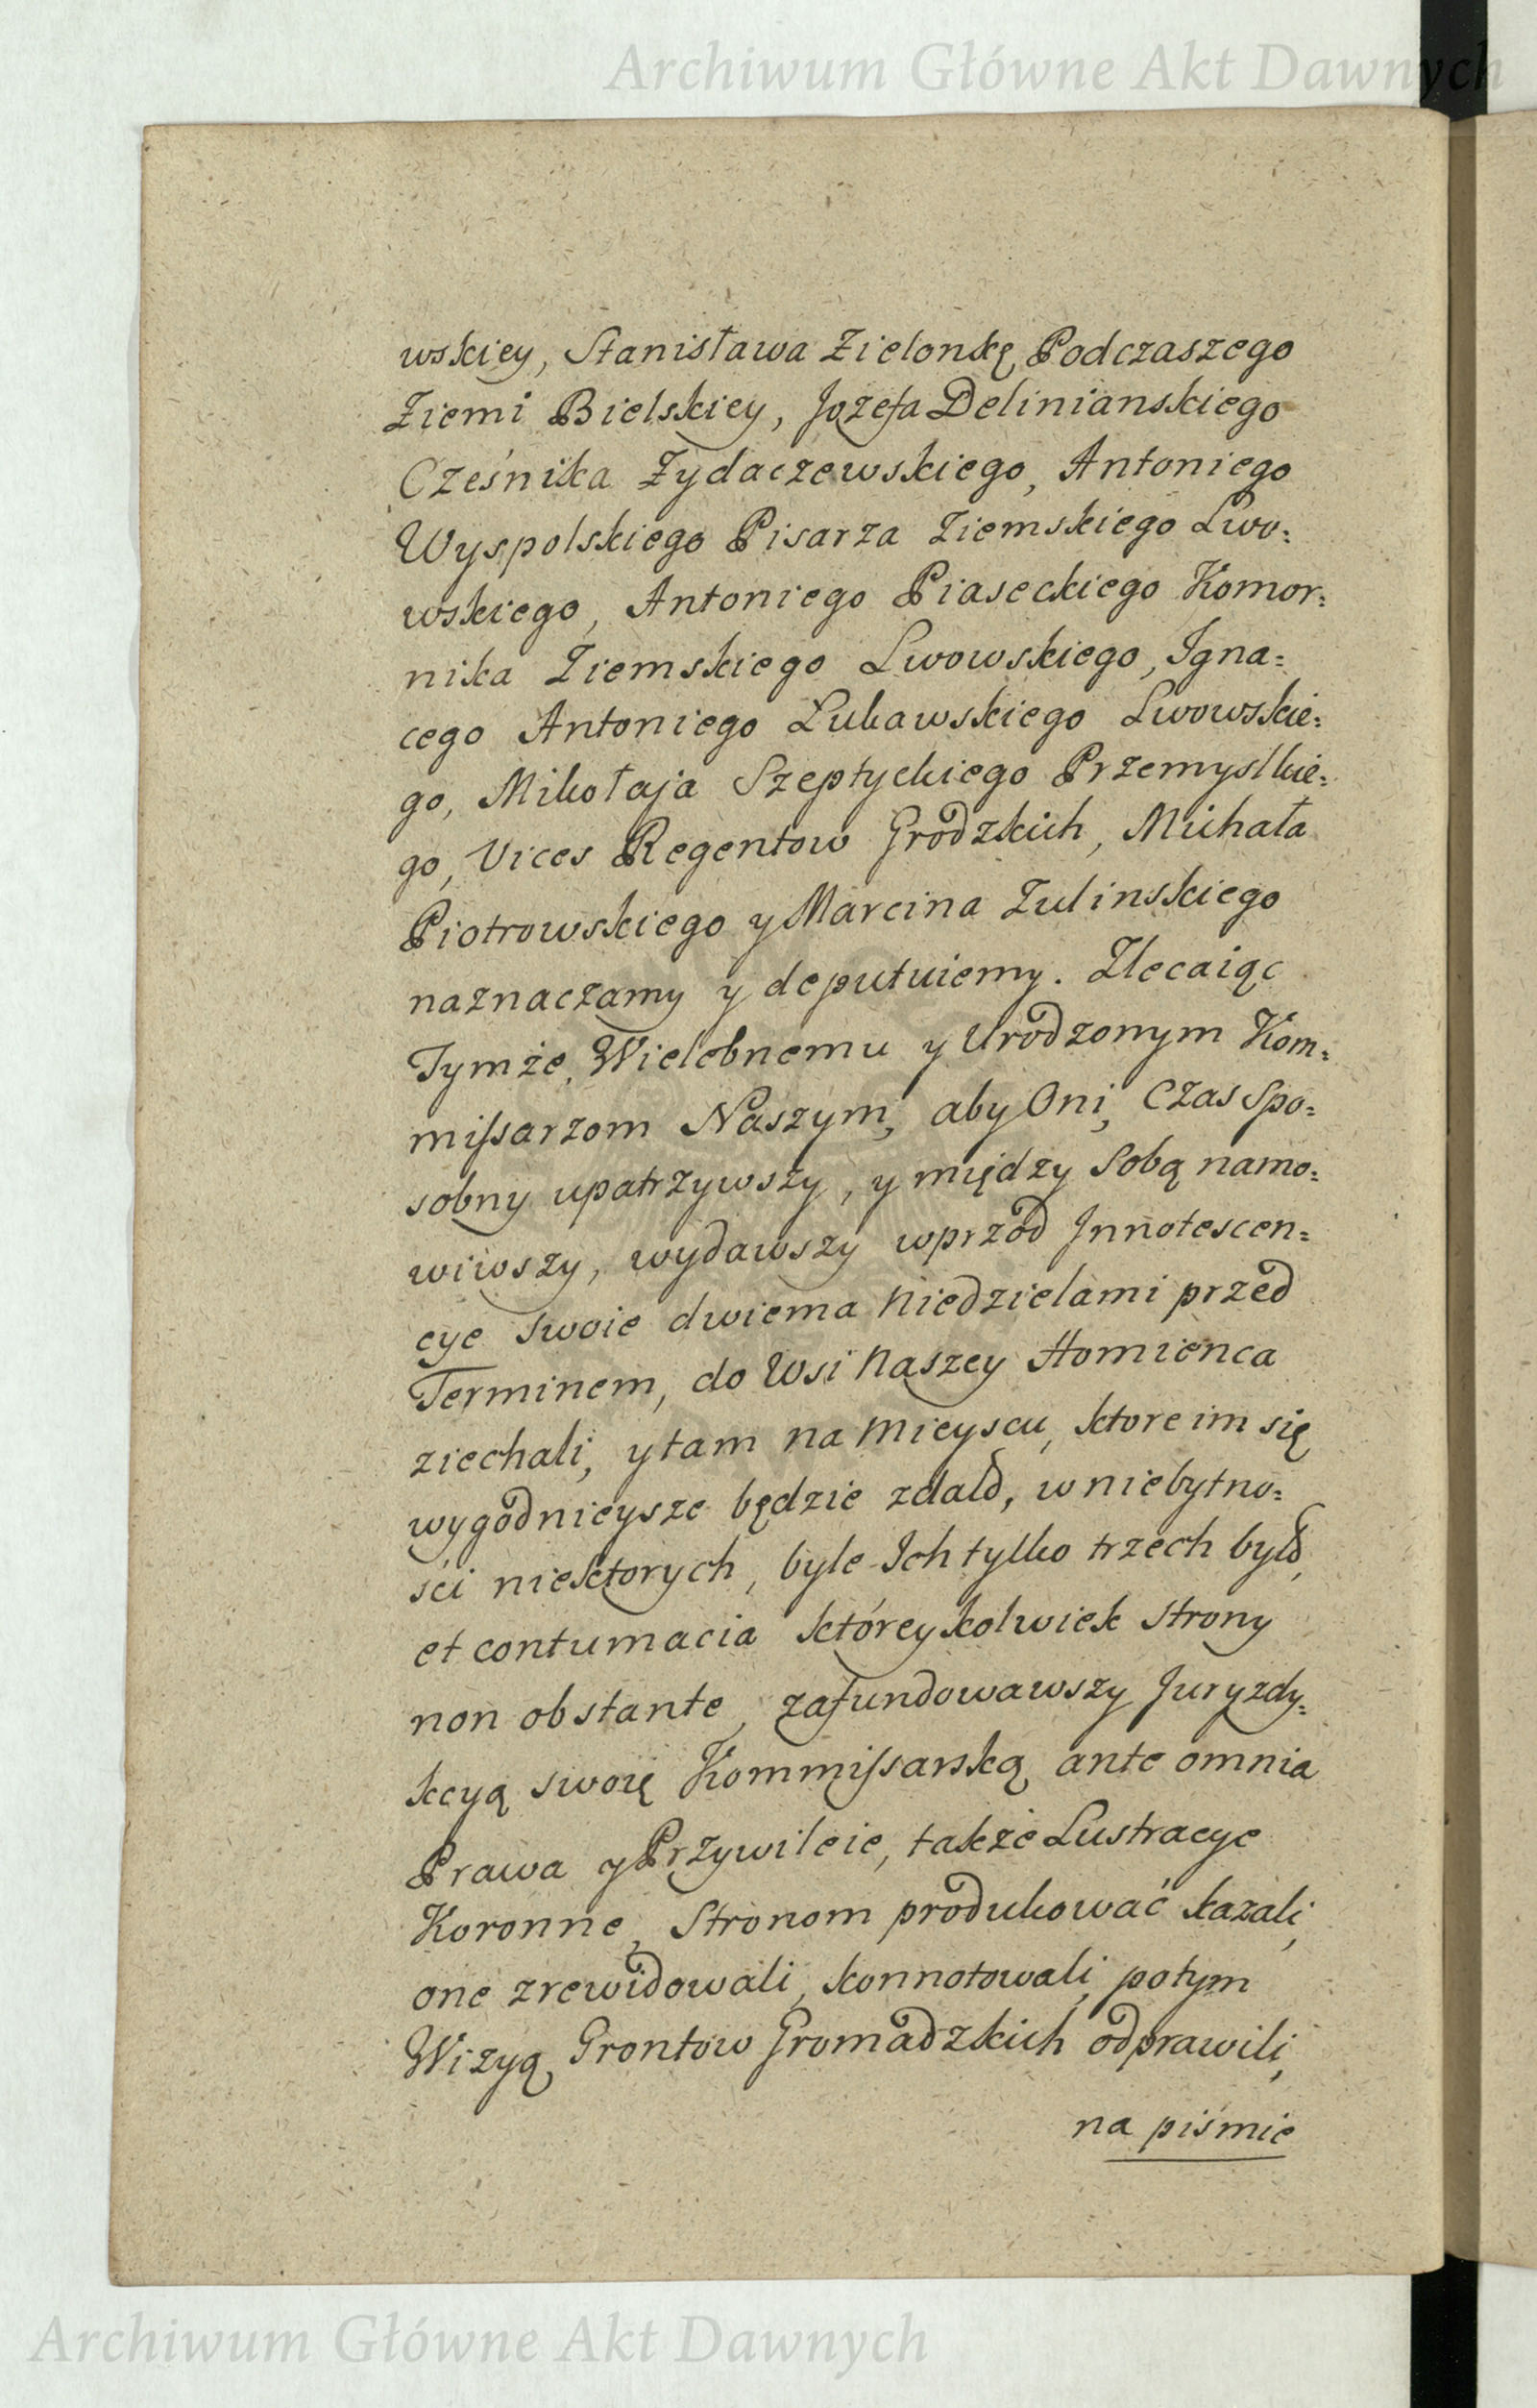 Archiwum Główne Akt Dawnych
wskiey, Stanisława Zielonkę Podczaszego
Ziemi Bielskiey, Jozefa Delinianskiego
Cześnika Zydaczewskiego, Antoniego
Wyspolskiego Pisarza Ziemskiego Lwo:
wskiego, Antoniego Piaseckiego Komor:
nika Ziemskiego Lwowskiego, Igna:
cego Antoniego Łukawskiego Lwowskie:
go, Mikołaja Szeptyckiego Przemyslkie:
go, Vices Regentow Grodzkich, Michała
Piotrowskiego y Marcina Zulinskiego
naznaczamy y deputuiemy. Zlecaiąc
Tymże, Wielebnemu y Urodzonym Kom:
missarzom Naszym, aby Oni, Czas Spo:
sobny upatrzywszy, y między Sobą namo:
wiwszy, wydawszy wprzod Innotescen:
cye swoie dwiema Niedzielami przed
Terminem, do Wsi Naszey Homienca
ziechali, y tam na Mieyscu, ktore im się
wygodnieysze będzie zdało, w niebytno:
ści niektorych, byle Ich tylko trzech było,
et contumacia któreykolwiek Strony
non obstante, zafundowawszy Juryzdy:
kcyą swoię Kommissarską ante omnia
Prawa y Przywileie, także Lustracye
Koronne, Stronom produkować kazali,
one zrewidowali, konnotowali, potym
Wizyą Grontow Gromadzkich odprawili,
na piśmie
Archiwum Główne Akt Dawnych